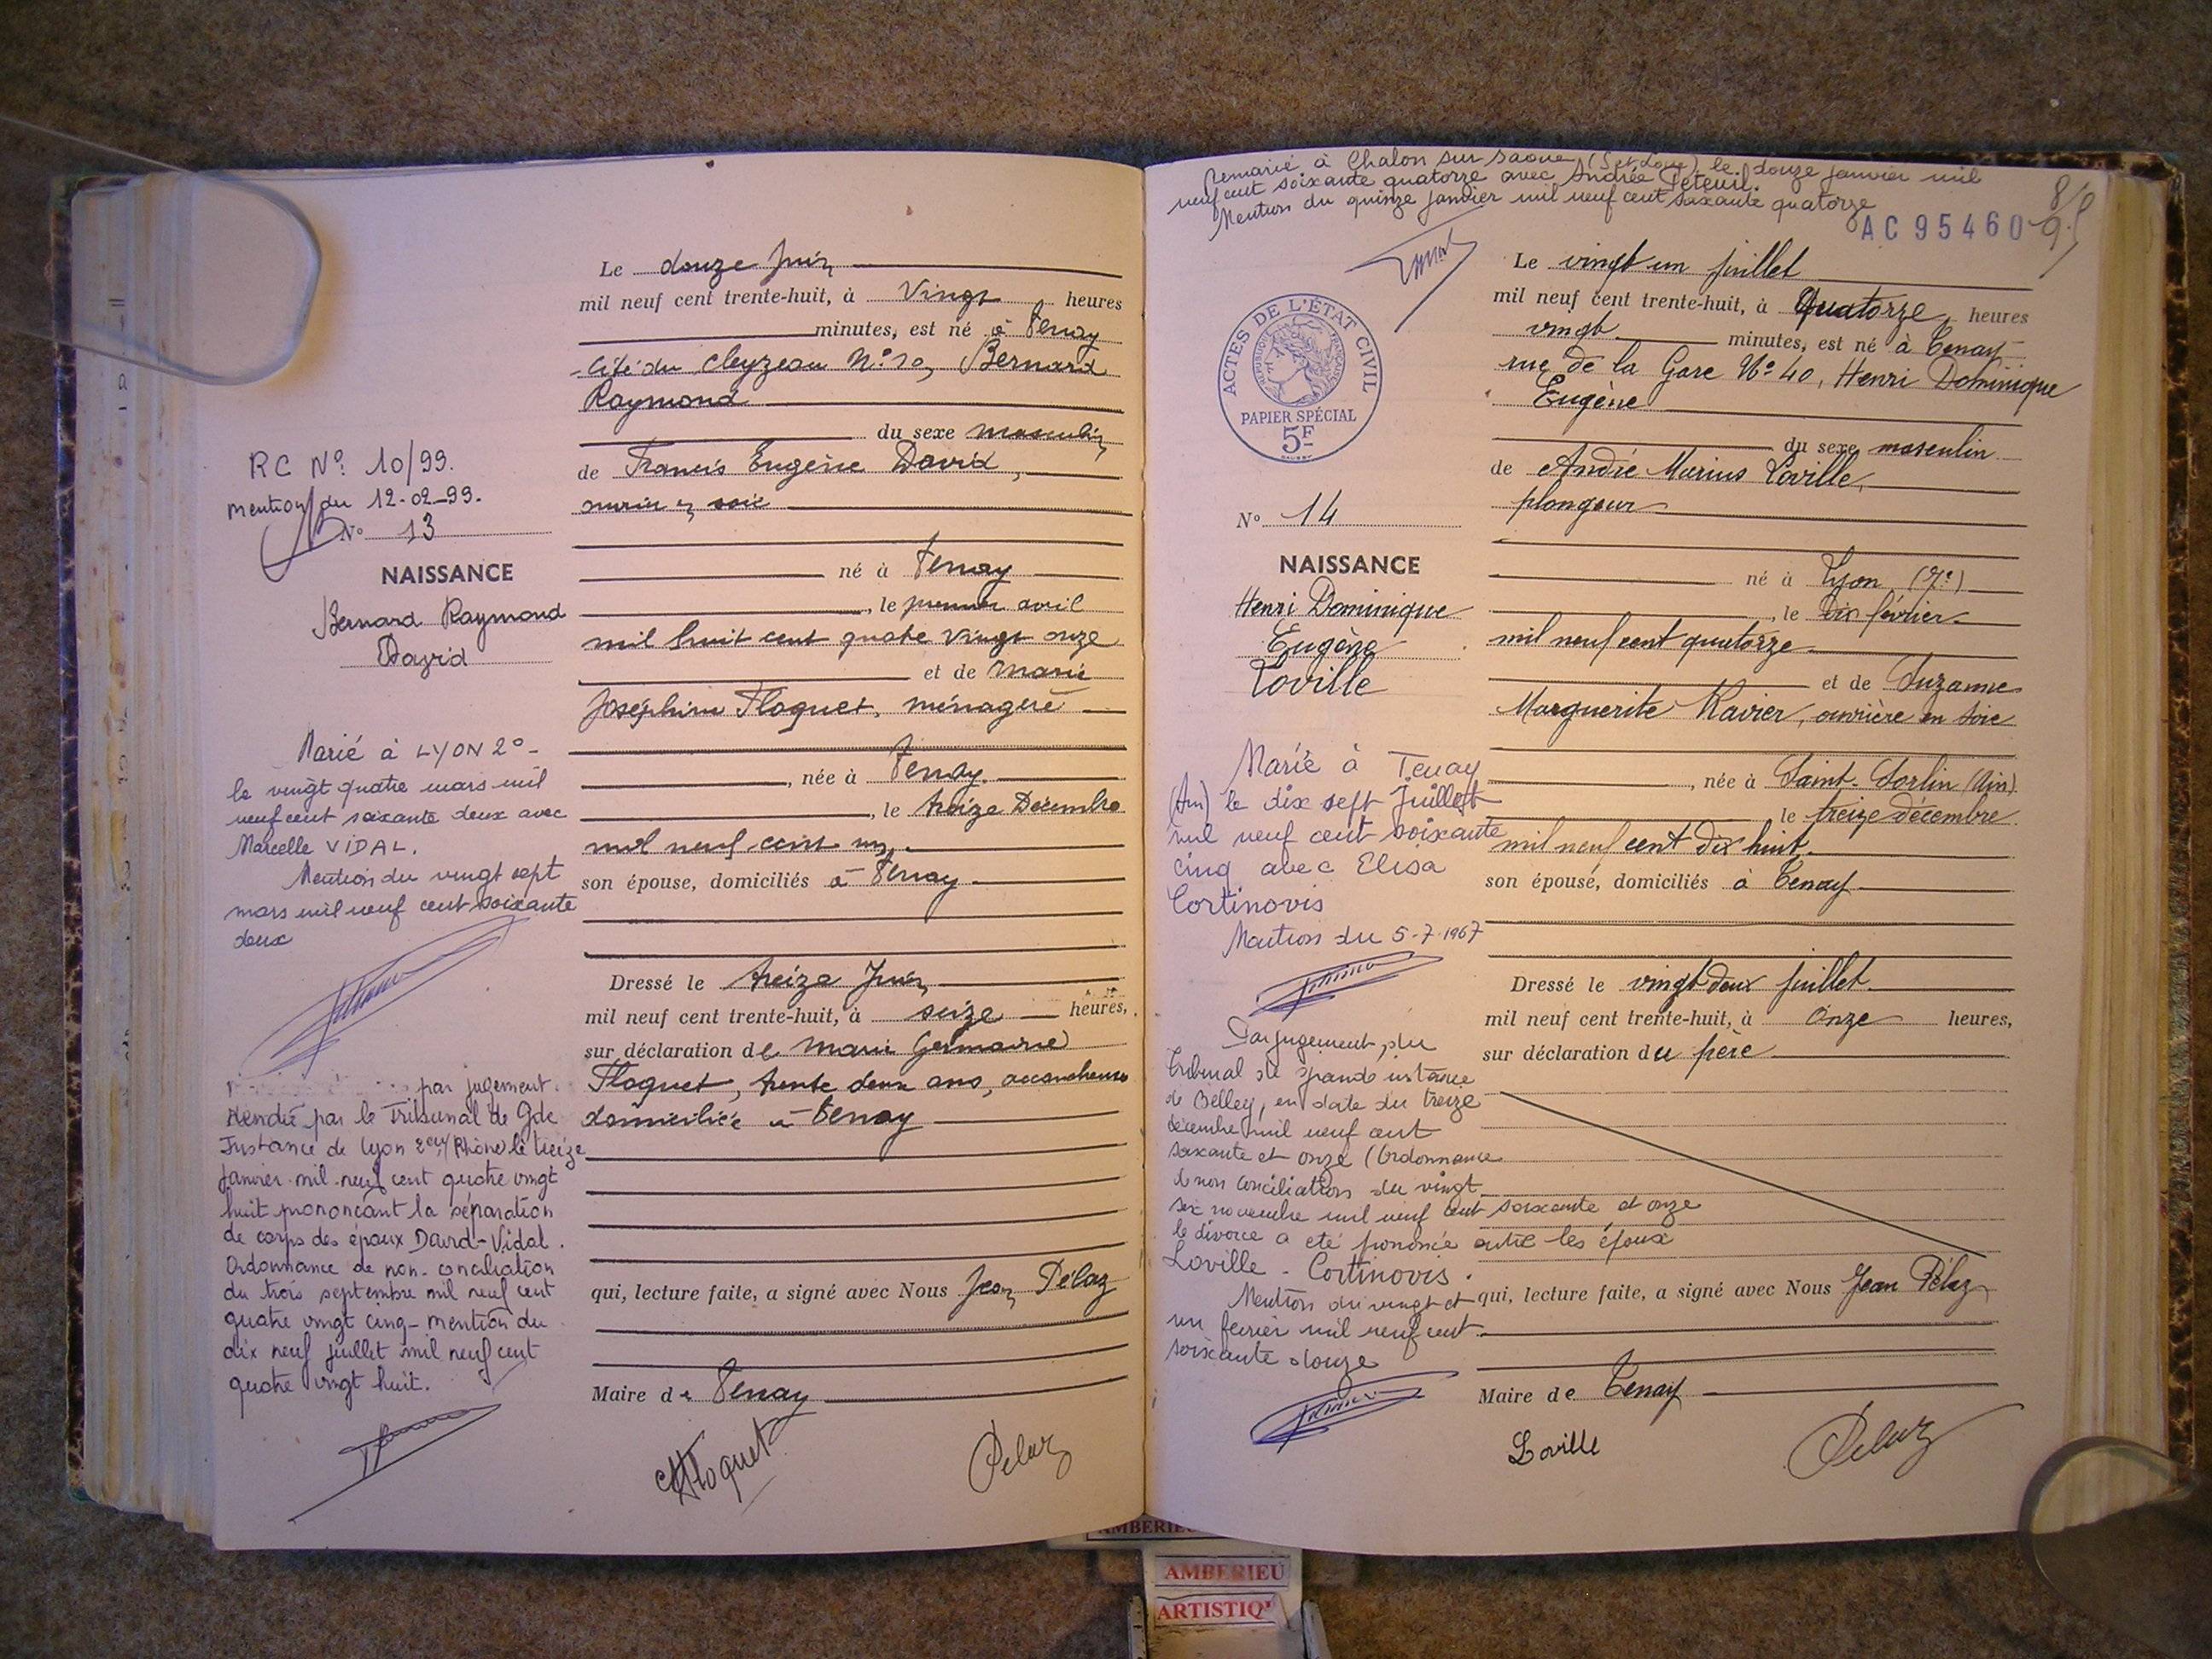 RC Nº 10/99.
mention du 12-02-99.
Nº 13
NAISSANCE
Bernard Raymond
David
Marié à LYON 2º
le vingt quatre mars mil
neuf cent soixante deux avec
Marcelle VIDAL.
Mention du vingt sept
mars mil neuf cent soixante
deux
par jugement
rendu par le Tribunal de Gde
Instance de Lyon (Rhône) le treize
janvier mil neuf cent quatre vingt
huit prononçant la séparation
de corps des époux David-Vidal.
Ordonnance de non-conciliation
du trois septembre mil neuf cent
quatre vingt cinq - mention du
dix neuf juillet mil neuf cent
quatre vingt huit.
Le douze Juin
mil neuf cent trente-huit, à Vingt heures
minutes, est né à Tenay
Cité du Cleyzeau Nº 10, Bernard
Raymond
du sexe masculin
de Francis Eugène David,
soie
né à Tenay
, le premier avril
mil huit cent quatre vingt onze
et de Marie
Joséphine Floquet, ménagère
, née à Tenay
, le treize Décembre
mil neuf cent un,
son épouse, domiciliés à Tenay
Dressé le treize Juin
mil neuf cent trente-huit, à seize heures,
sur déclaration de Marie Germaine
Floquet, trente deux ans, accoucheuse
domiciliée à Tenay
qui, lecture faite, a signé avec Nous Jean Pélaz
Maire de Tenay
Floquet Pelaz
Remarié à Chalon sur Saone (S et Loire) le douze janvier mil
neuf cent soixante quatorze avec Andrée Peteuil.
Mention du quinze janvier mil neuf cent soixante quatorze
AC 95460
ACTES DE L'ÉTAT CIVIL
REPUBLIQUE FRANÇAISE
PAPIER SPÉCIAL
5F
Nº 14
NAISSANCE
Henri Dominique
Eugène
Loville
Marié à Tenay
(Ain) le dix sept Juillet
mil neuf cent soixante
cinq avec Elisa
Cortinovis
Mention du 5-7-1967
Par jugement du
tribunal de grande instance
de Belley, en date du treize
décembre mil neuf cent
soixante et onze (Ordonnance
de non conciliation du vingt
six novembre mil neuf cent soixante et onze
le divorce a été prononcé entre les époux
Loville - Cortinovis.
Mention du vingt et
un fevrier mil neuf cent
soixante douze
Le vingt un juillet
mil neuf cent trente-huit, à Quatorze heures
vingt minutes, est né à Tenay
rue de la Gare Nº 40, Henri Dominique
Eugène
du sexe masculin
de André Marius Loville,
plongeur
né à Lyon (7e)
, le dix février
mil neuf cent quatorze
et de Suzanne
Marguerite Ravier, ouvrière en soie
, née à Saint-Sorlin (Ain)
le treize décembre
mil neuf cent dix huit
son épouse, domiciliés à Tenay
Dressé le vingt deux juillet
mil neuf cent trente-huit, à Onze heures,
sur déclaration du père
qui, lecture faite, a signé avec Nous Jean Pélaz
Maire de Tenay
Loville Pelaz
AMBERIEU
ARTISTIQ